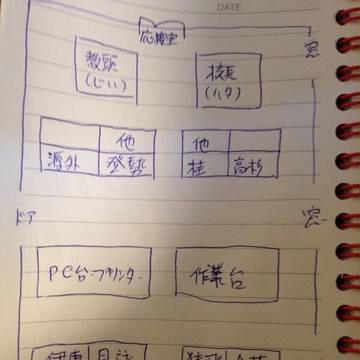 DATE
応接室
窓
教頭
(じい)
校長
(ハタ)
他 他
源外 登勢 桂 高杉
ドア 窓
PC台・プリンター 作業台
伊東